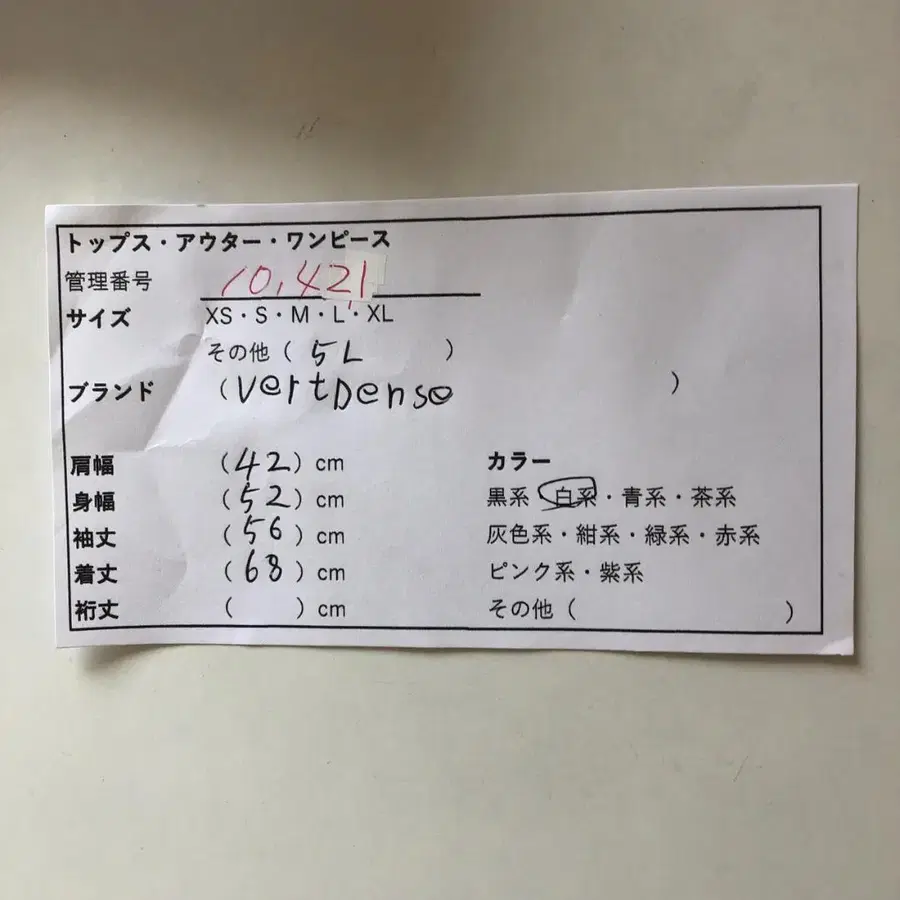 トップス・アウター・ワンピース
管理番号 10,421
サイズ XS・S・M・L・XL
その他（ 5L ）
ブランド （vertDense ）
肩幅 （42）cm
身幅 （52）cm
袖丈 （56）cm
着丈 （68）cm
裄丈 （ ）cm
カラー
黒系・白系・青系・茶系
灰色系・紺系・緑系・赤系
ピンク系・紫系
その他（ ）